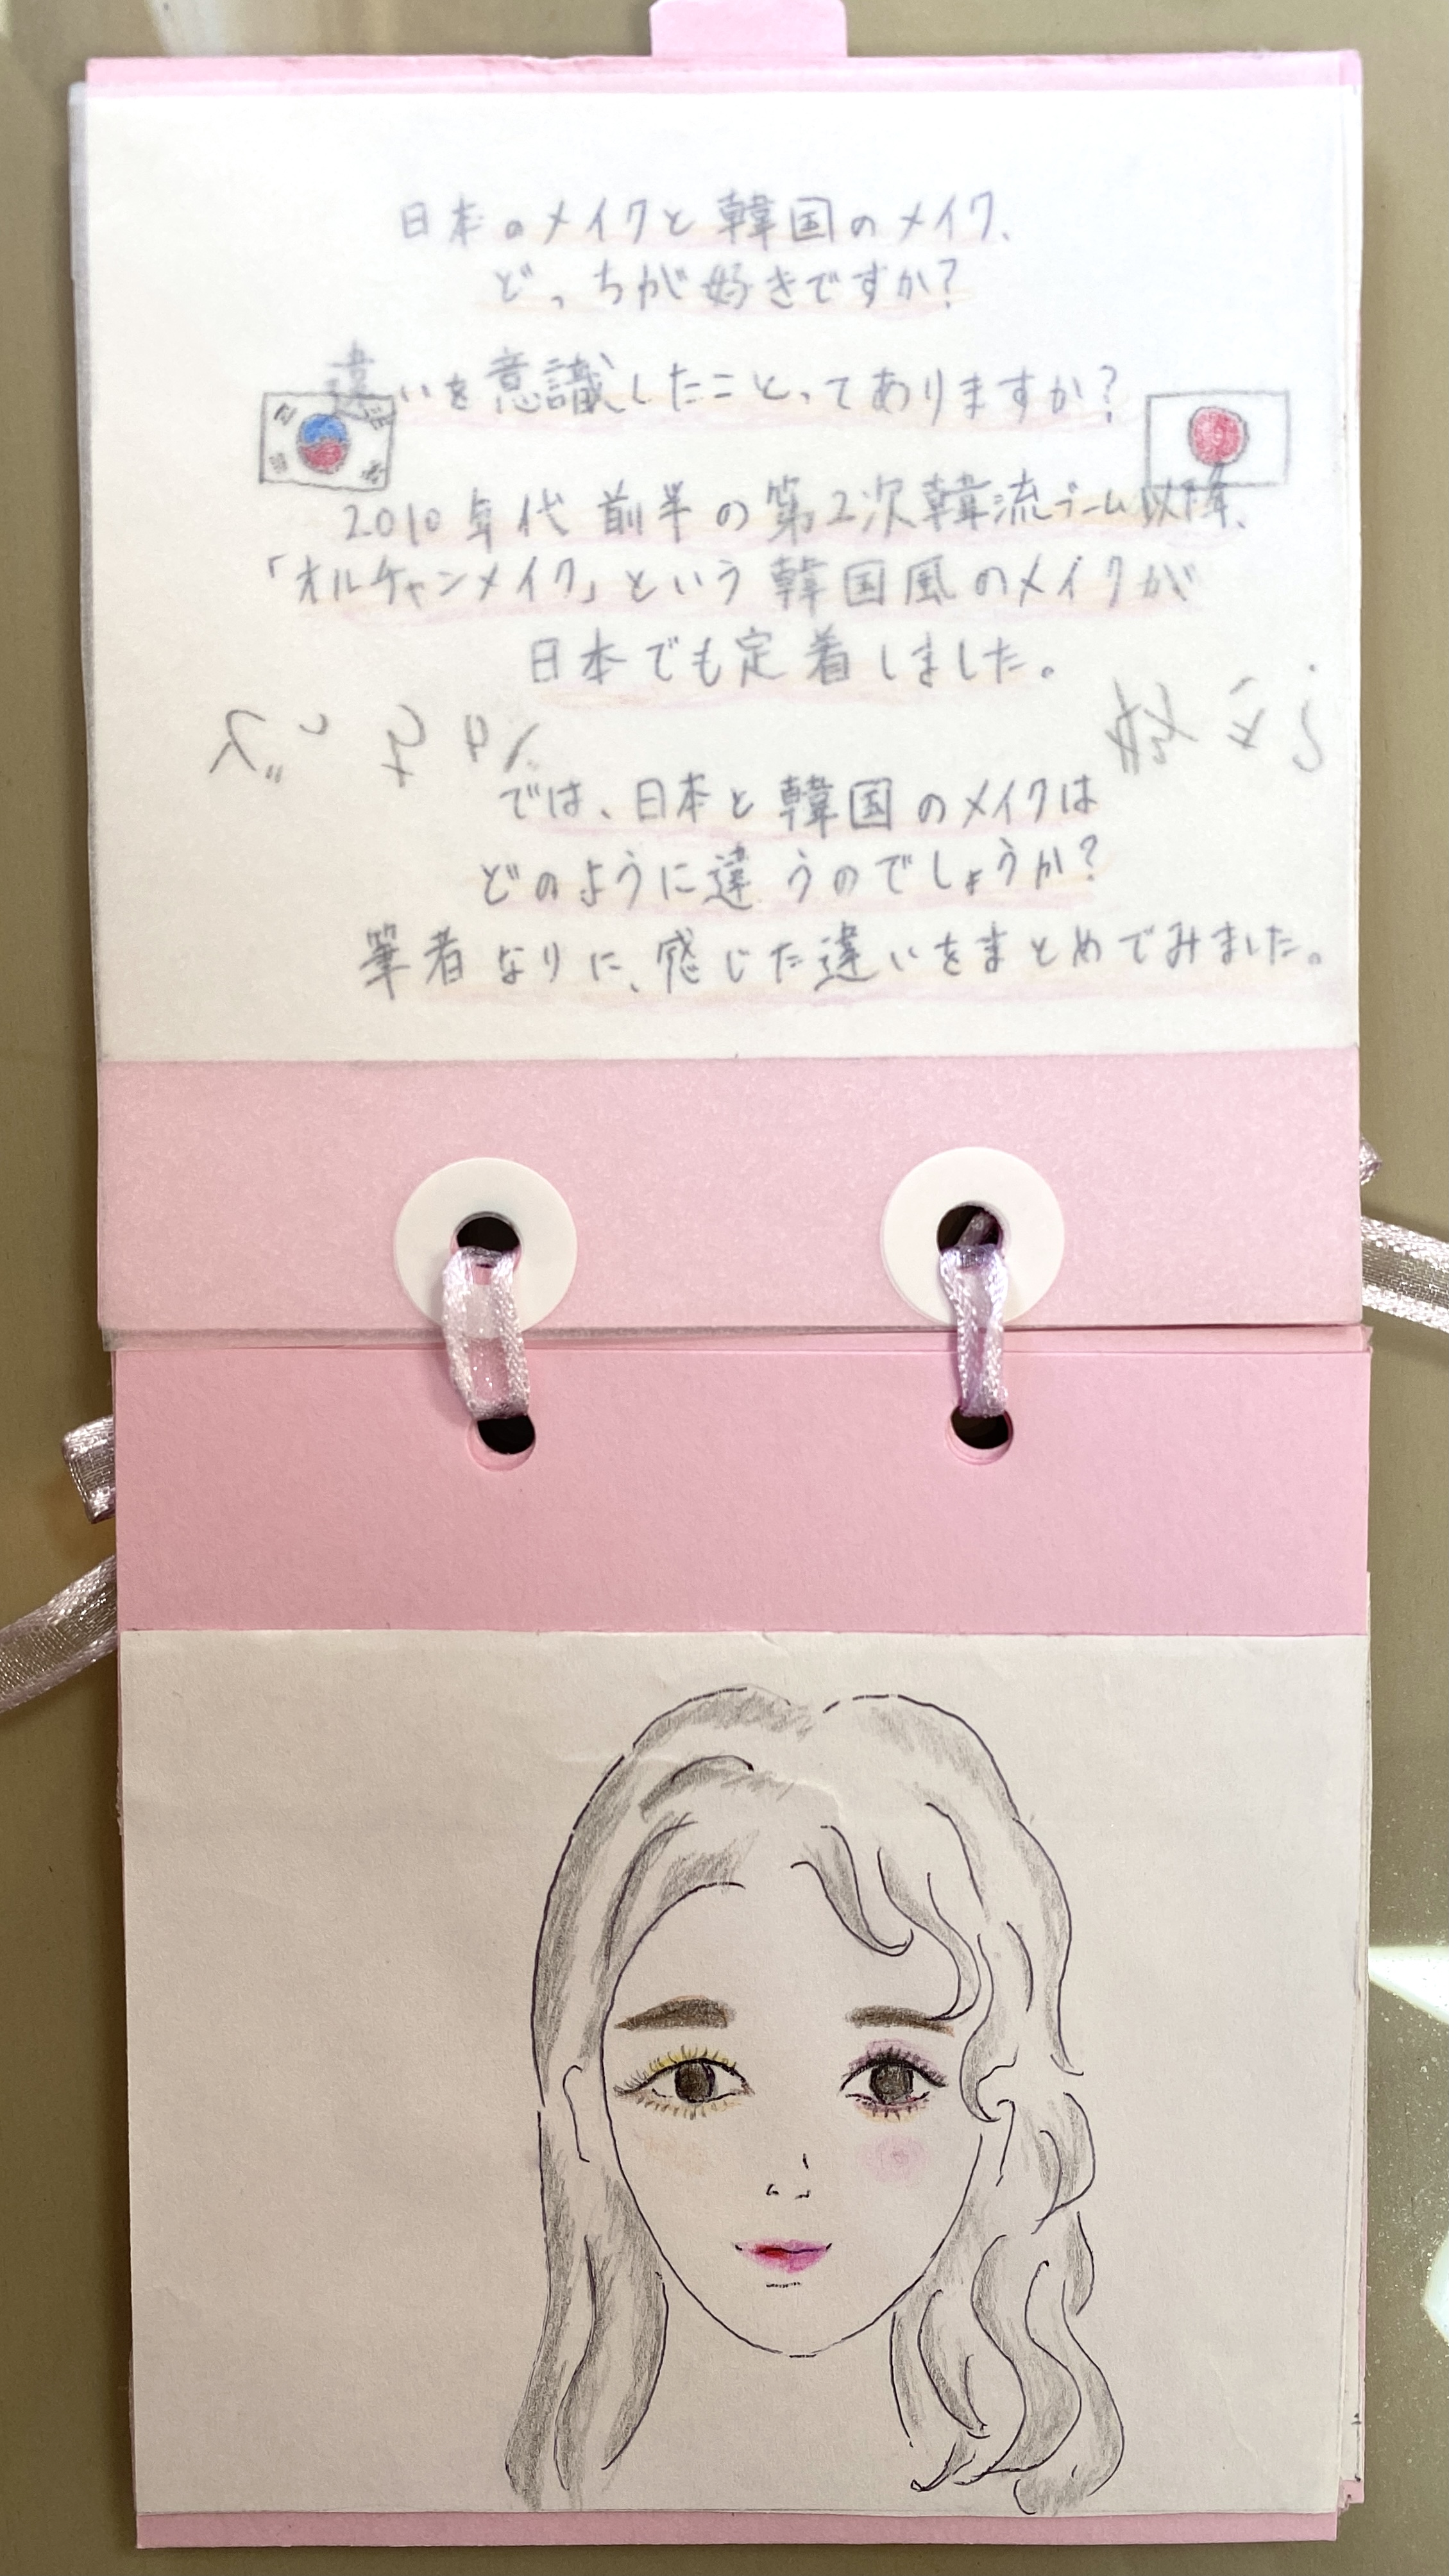 日本のメイクと韓国のメイク、
どっちが好きですか?
違いを意識したことってありますか?
2010年代前半の第2次韓流ブーム以降、
「オルチャンメイク」という韓国風のメイクが
日本でも定着しました。
では、日本と韓国のメイクは
どのように違うのでしょうか?
筆者なりに、感じた違いをまとめでみました。